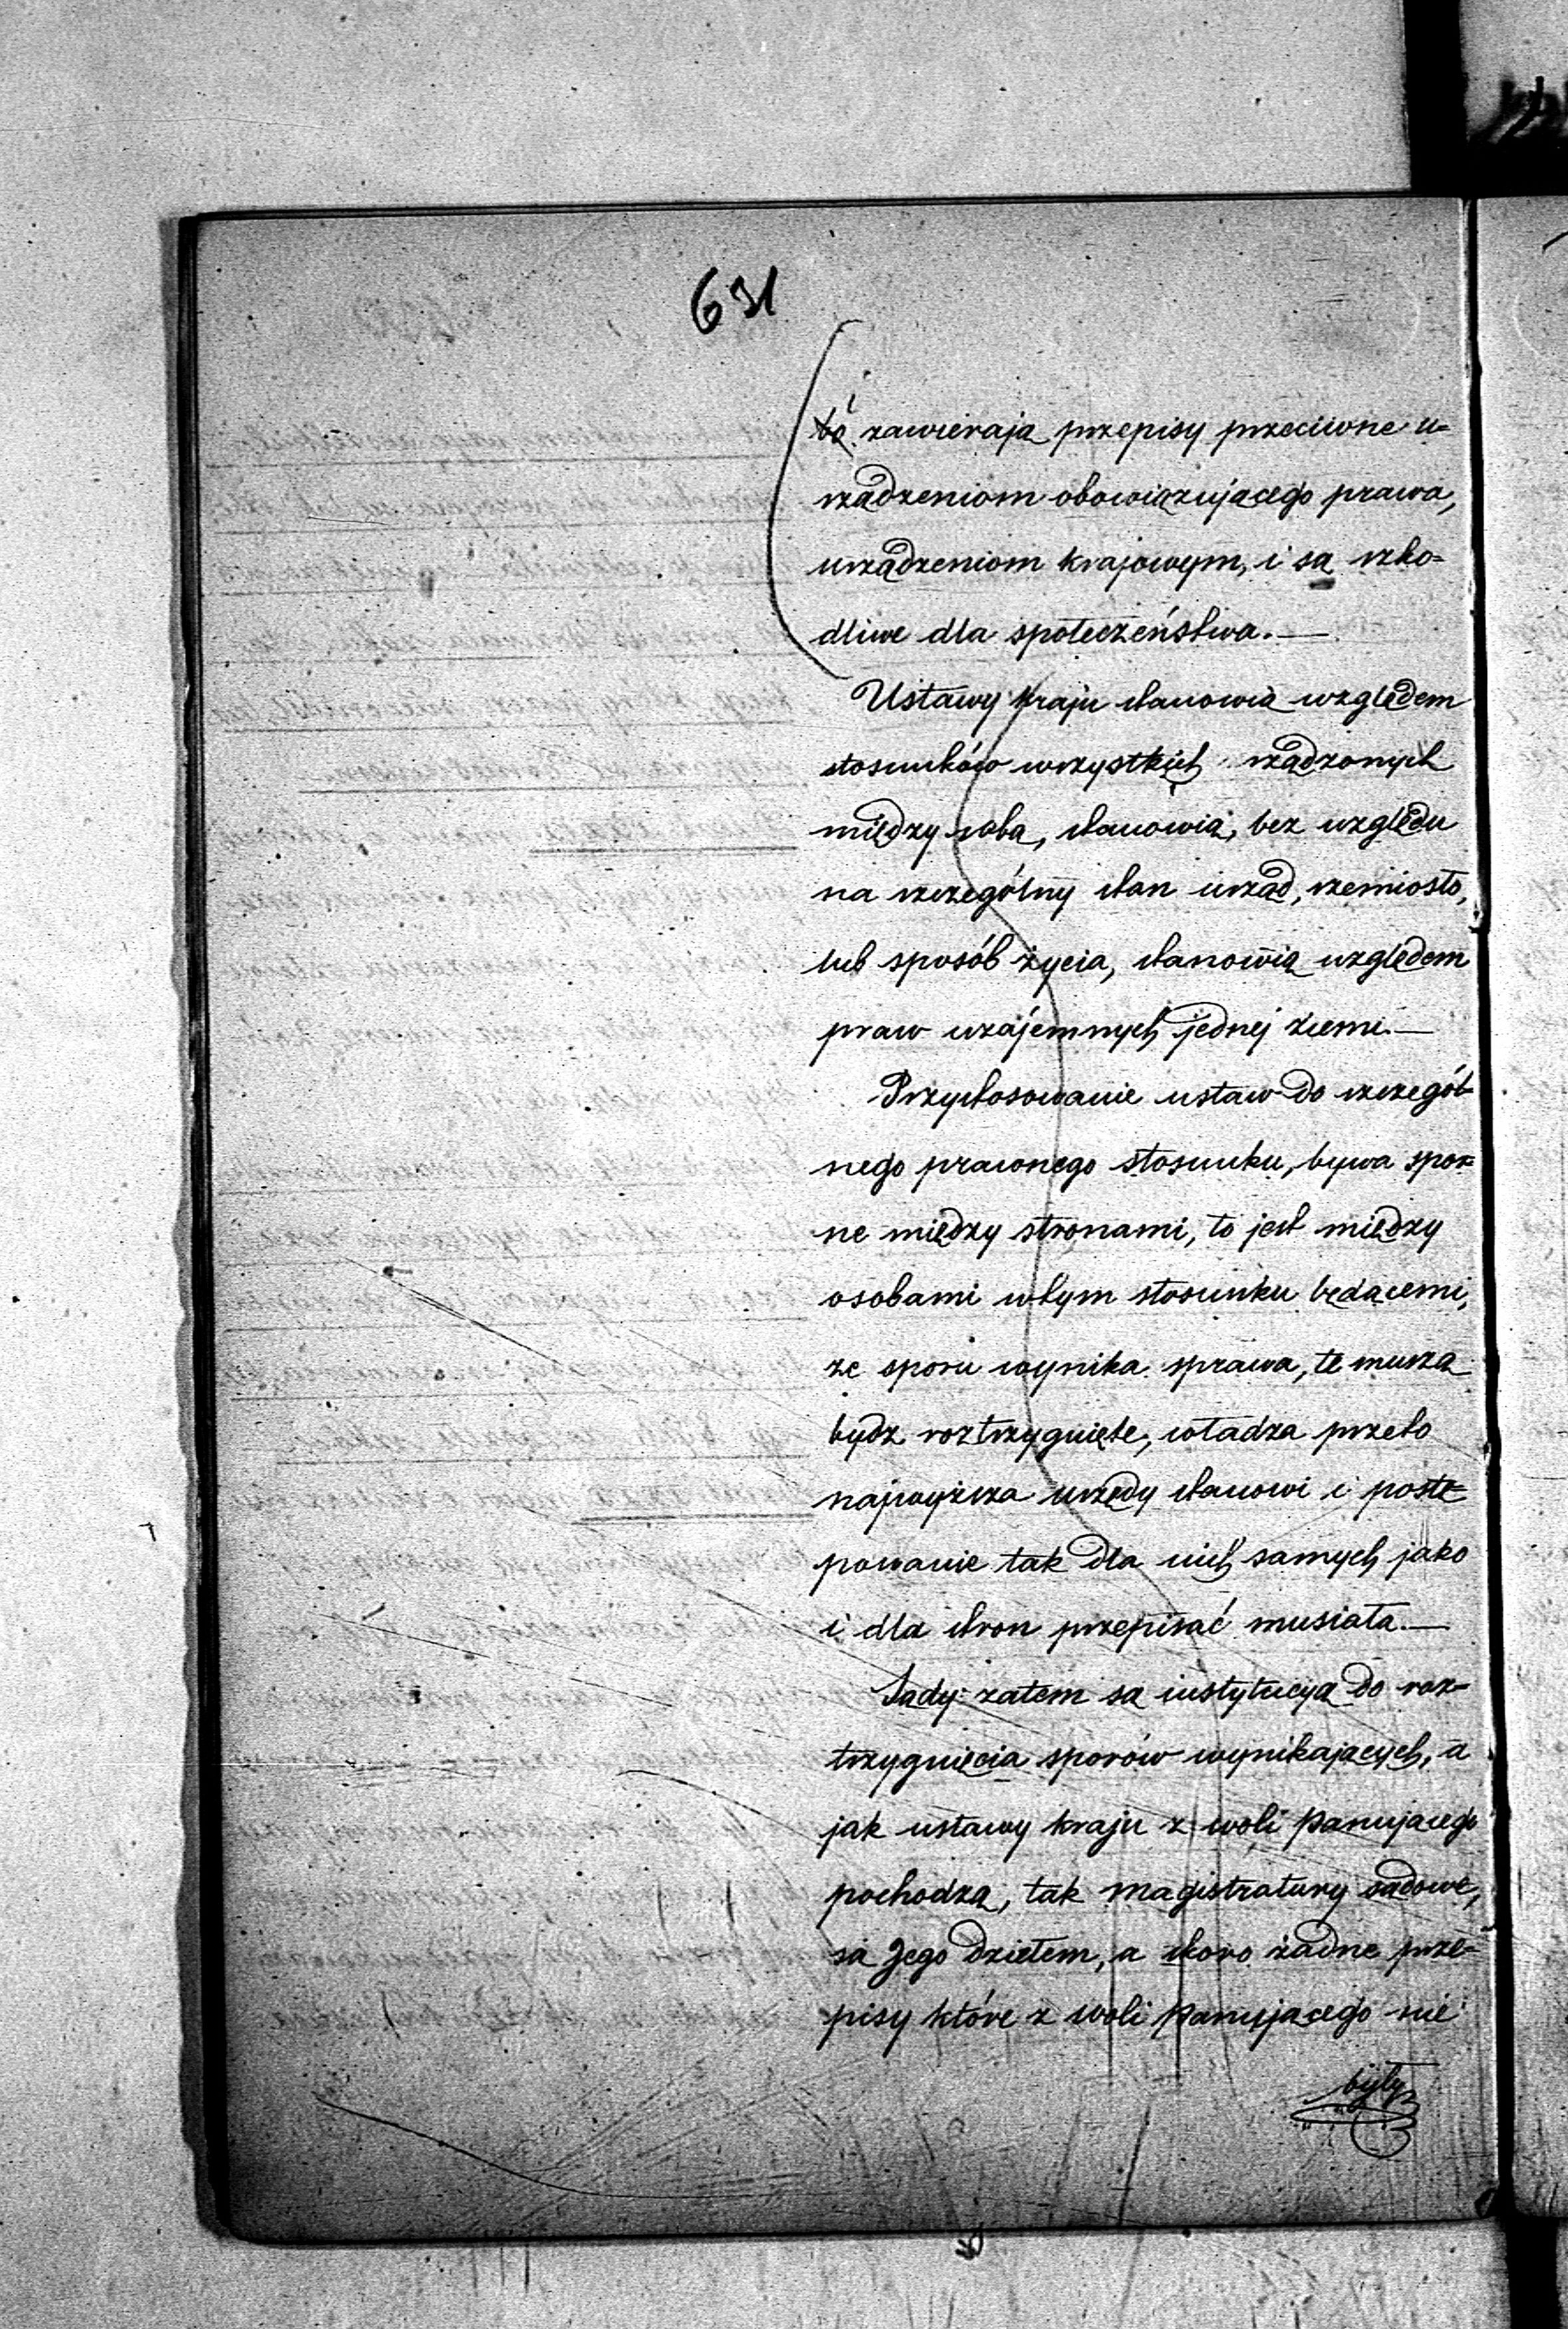 631
i zawierają przepisy przeciwne u=
rządzeniom obowiązującego prawa,
urządzeniom krajowym, i są szko=
dliwe dla społeczeństwa.—
Ustawy kraju stanowią względem
stosunków wszystkich rządzonych
między sobą, stanowią, bez względu
na szczególny stan urząd, rzemiosło,
lub sposób życia, stanowią względem
praw wzajemnych jednej ziemi.—
Przystosowanie ustaw do szczegól=
nego prawnego stosunku, bywa spor=
ne między stronami, to jest między
osobami wtym stosunku będącemi,
ze sporu wynika sprawa, te muszą
bydz roztrzygnięte, władza przeto
najwyższa urzędy stanowi i postę=
powanie tak dla nich samych jako
i dla stron przepisać musiała.—
Sądy zatem są instytucyą do roz=
trzygnięcia sporów wynikających, a
jak ustawy kraju z woli Panującego
pochodzą, tak magistratury sądowe,
są Jego dziełem, a skoro żadne prze=
pisy które z woli Panującego nie
były